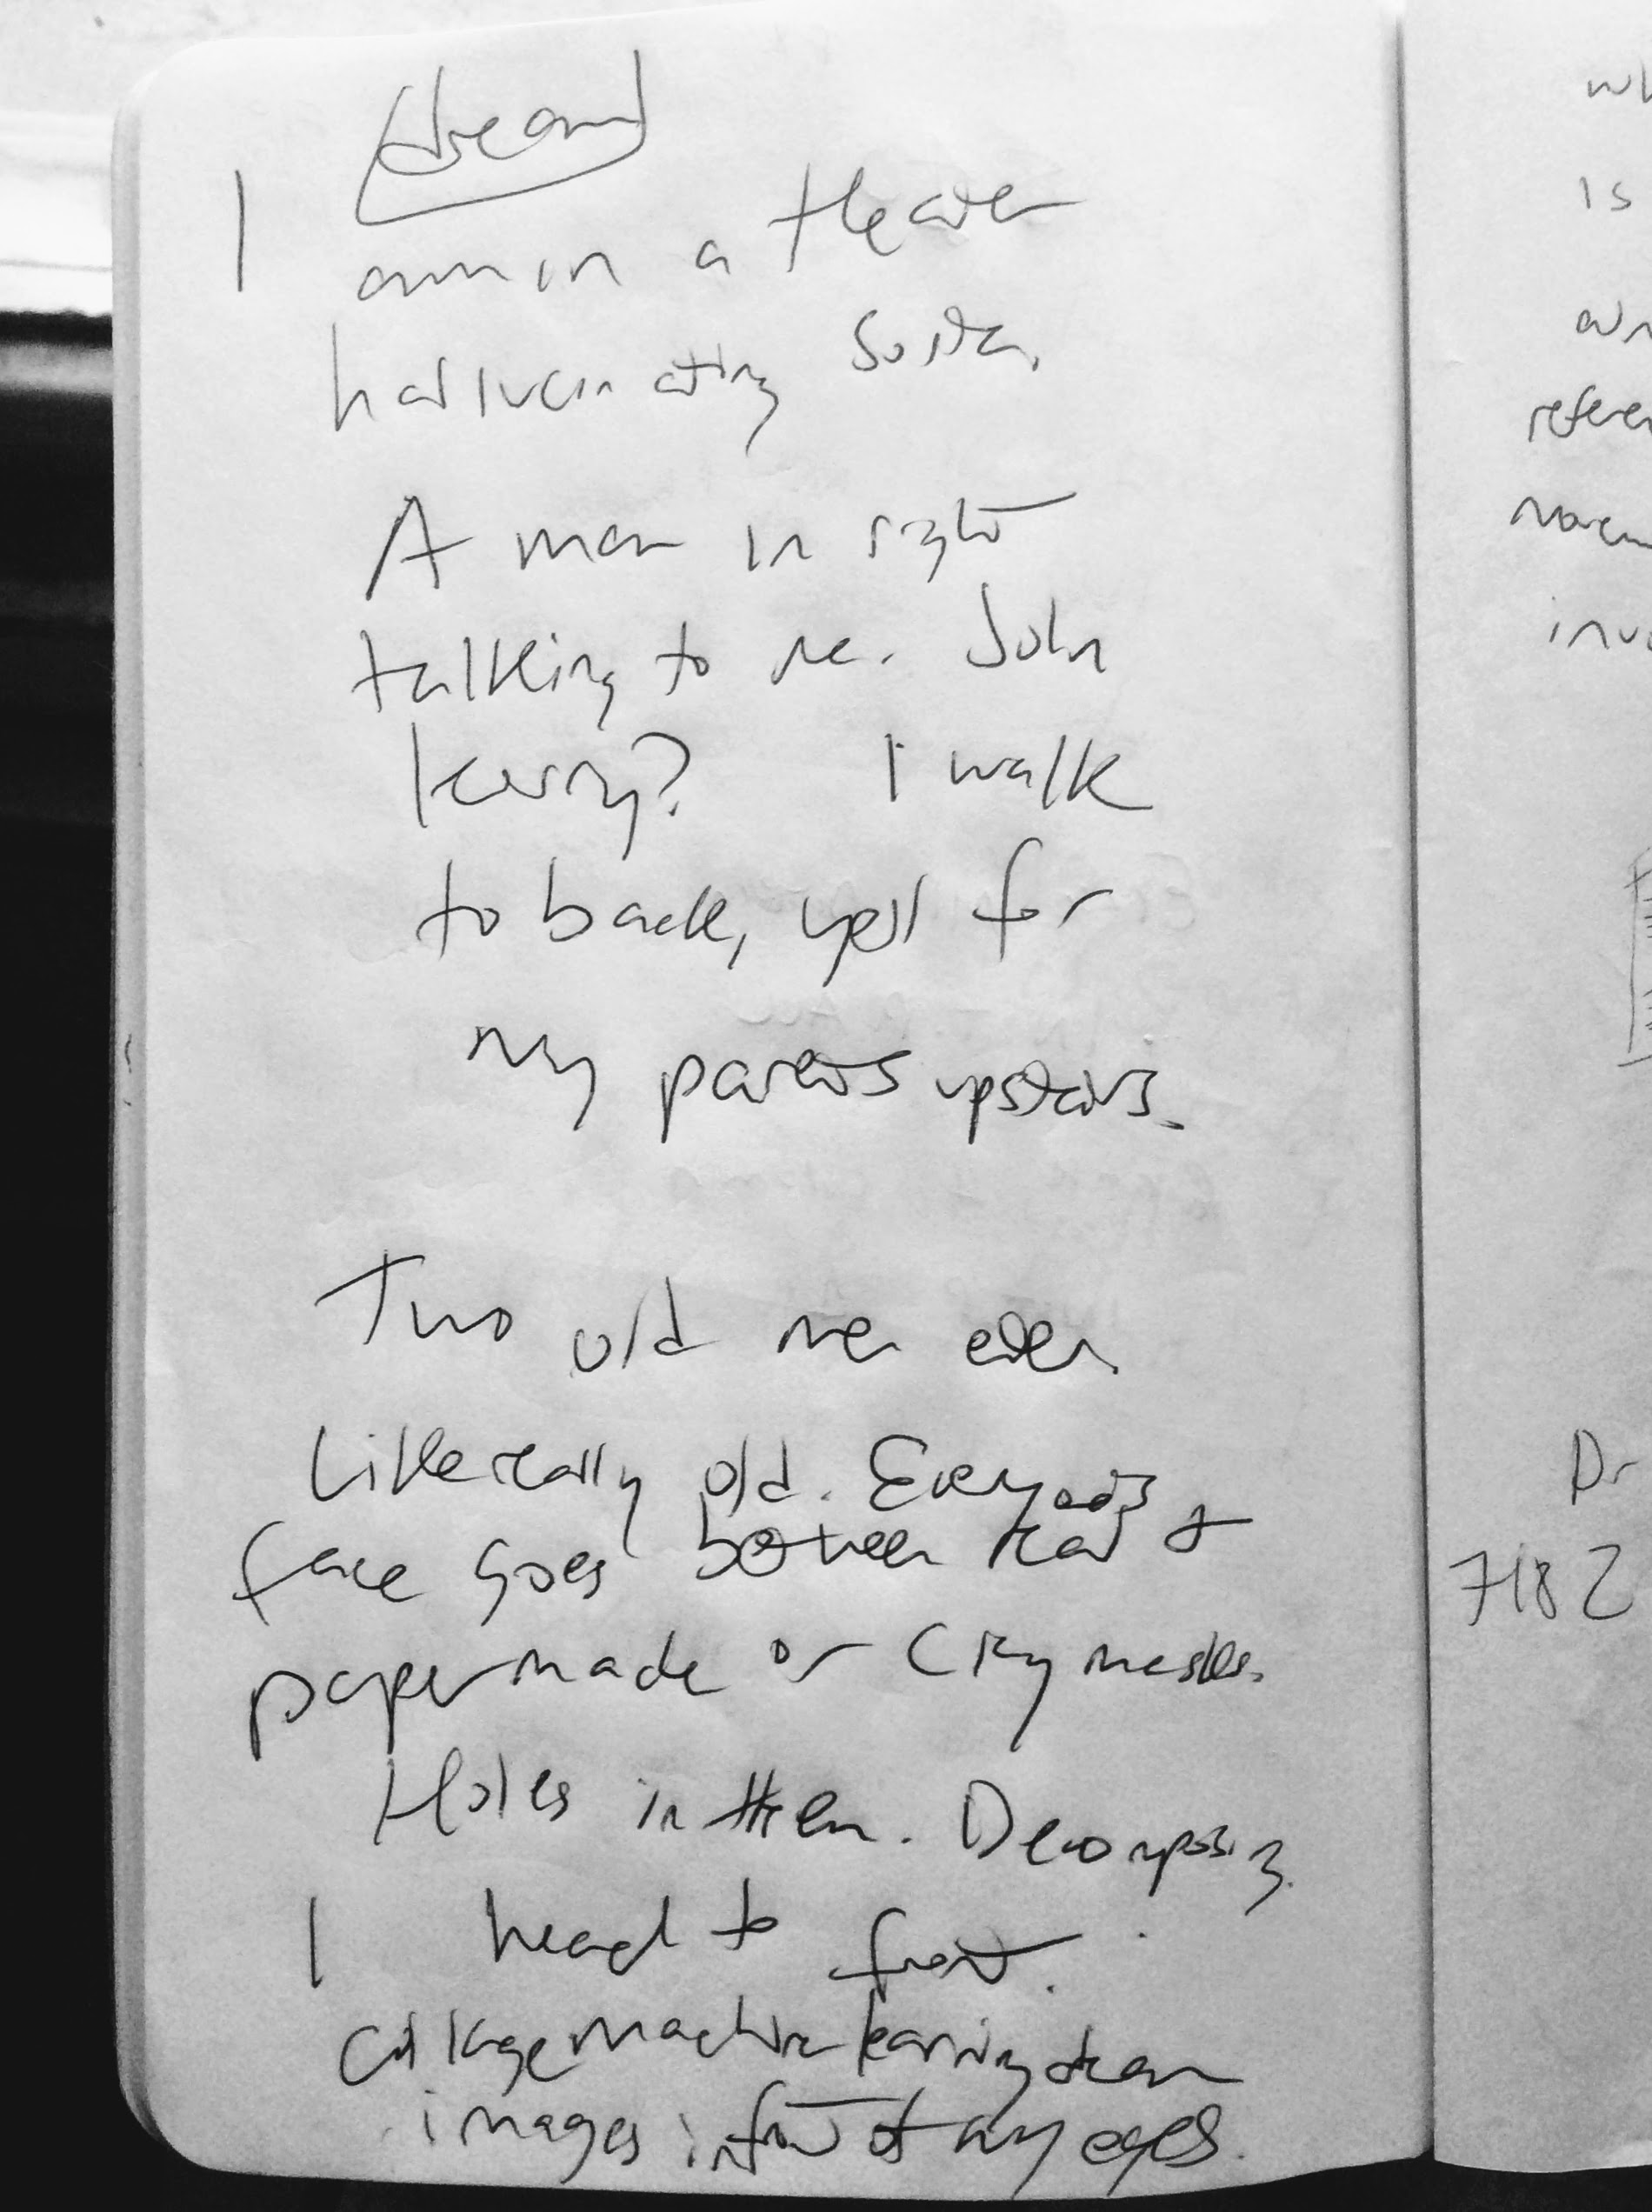 dream
I am in a theater
hallucinating
A man in right
talking to me. John
Kerry? I walk
to back, yell for
my parents upstairs.
Two old men
Like really old. Everyone's
face goes between real &
paper made or clay masks.
Holes in them. Decomposing.
I head to front.
collage machine learning dream
images in front of my eyes.
is
Dr
7182